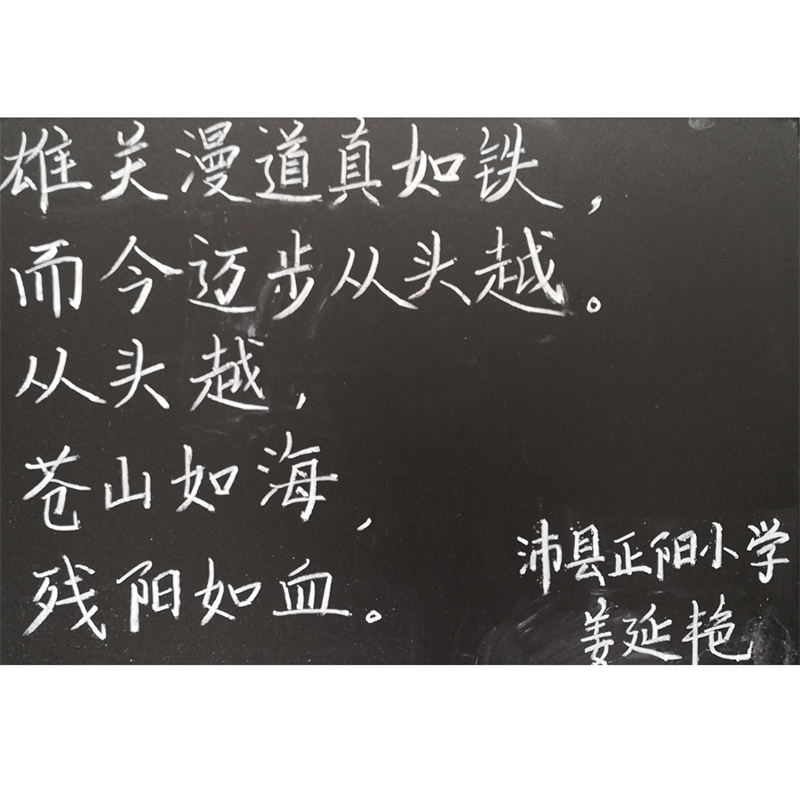 雄关漫道真如铁，
而今迈步从头越。
从头越，
苍山如海，
残阳如血。
沛县正阳小学
姜延艳